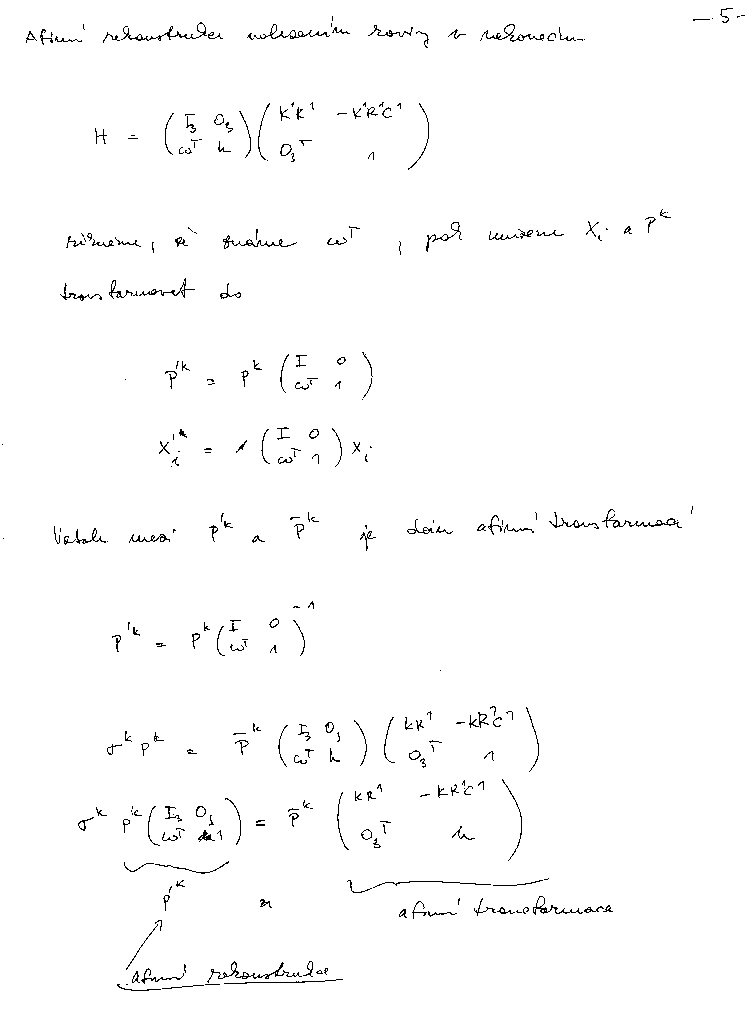 — 5 -
Afinní rekonstrukce nalezením roviny v nekonečnu
H = ( I₃ O₃ ; ωᵀ h ) ( K¹R¹ -K¹R¹C¹ ; O₃ᵀ 1 )
řekneme, že známe ωᵀ, pak můžeme Xᵢ a Pᵏ
transformovat do
P'ᵏ = Pᵏ ( I 0 ; ωᵀ 1 )
X'ᵢ = ( I 0 ; ωᵀ 1 ) Xᵢ
Vztah mezi P'ᵏ a P̄ᵏ je dán afinní transformací
P'ᵏ = Pᵏ ( I 0 ; ωᵀ 1 )⁻¹
σᵏ Pᵏ = P̄ᵏ ( I₃ O₃ ; ωᵀ h ) ( KR¹ -KR¹C¹ ; O₃ᵀ 1 )
σᵏ P'ᵏ ( I₃ O₃ ; ωᵀ 1 ) = P̄ᵏ ( KR¹ -KR¹C¹ ; O₃ᵀ h )
P'ᵏ
afinní transformace
afinní rekonstrukce